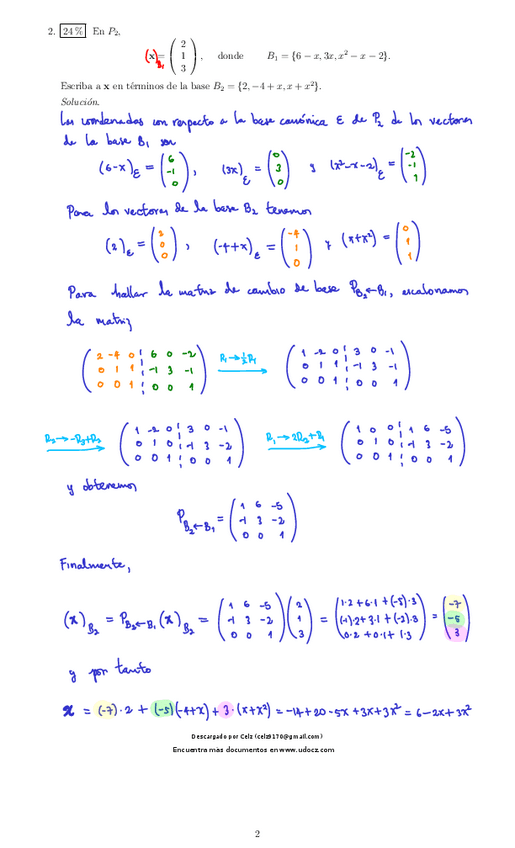 2. 24% En P₂,
(x)_B₁ = (2 1 3), donde B₁ = {6 − x, 3x, x² − x − 2}.
Escriba a x en términos de la base B₂ = {2, −4 + x, x + x²}.
Solución.
Las coordenadas con respecto a la base canónica ℰ de P₂ de los vectores
de la base B₁ son
(6-x)_ℰ = (6 -1 0), (3x)_ℰ = (0 3 0) y (x²-x-2)_ℰ = (-2 -1 1)
Para los vectores de la base B₂ tenemos
(2)_ℰ = (2 0 0), (-4+x)_ℰ = (-4 1 0) y (x+x²) = (0 1 1)
Para hallar la matriz de cambio de base P_B₂←B₁, escalonamos
la matriz
(2 -4 0 ¦ 6 0 -2
0 1 1 ¦ -1 3 -1
0 0 1 ¦ 0 0 1) R₁→½R₁ (1 -2 0 ¦ 3 0 -1
0 1 1 ¦ -1 3 -1
0 0 1 ¦ 0 0 1)
R₂→-R₃+R₂ (1 -2 0 ¦ 3 0 -1
0 1 0 ¦ -1 3 -2
0 0 1 ¦ 0 0 1) R₁→2R₂+R₁ (1 0 0 ¦ 1 6 -5
0 1 0 ¦ -1 3 -2
0 0 1 ¦ 0 0 1)
y obtenemos
P_B₂←B₁ = (1 6 -5
-1 3 -2
0 0 1)
Finalmente,
(x)_B₂ = P_B₂←B₁ (x)_B₂ = (1 6 -5
-1 3 -2
0 0 1) (2 1 3) = (1·2+6·1+(-5)·3
(-1)·2+3·1+(-2)·3
0·2+0·1+1·3) = (-7 -5 3)
y por tanto
x = (-7)·2 + (-5)(-4+x) + 3·(x+x²) = -14+20-5x+3x+3x² = 6-2x+3x²
Descargado por Celz (celz9170@gmail.com)
Encuentra más documentos en www.udocz.com
2